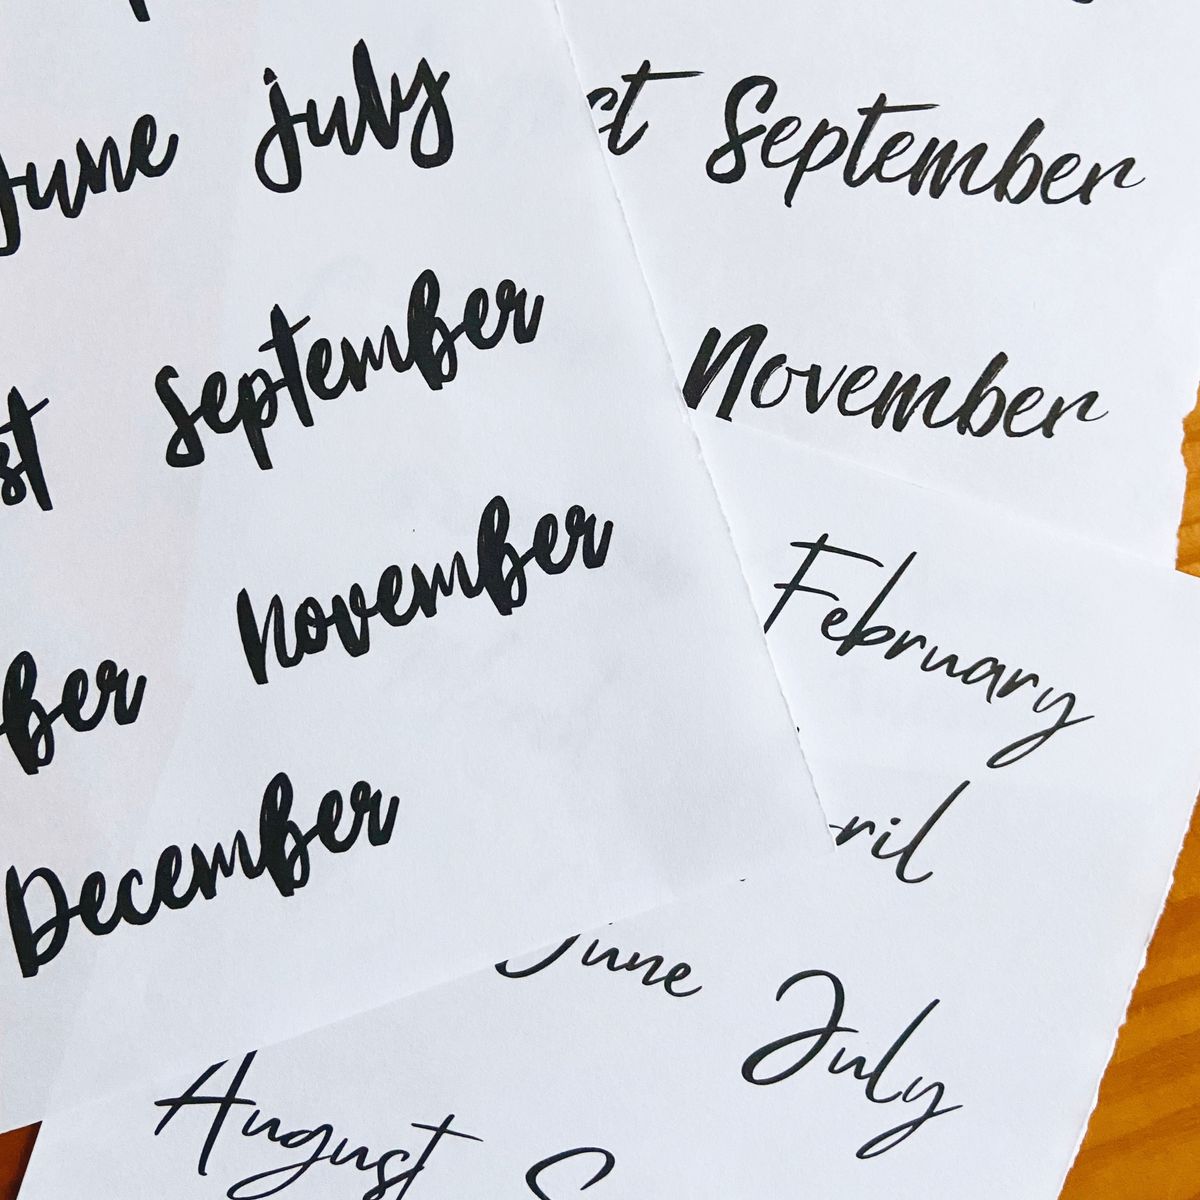 June July
st September
ber November
December
st September
November
February
ril
June July
August S